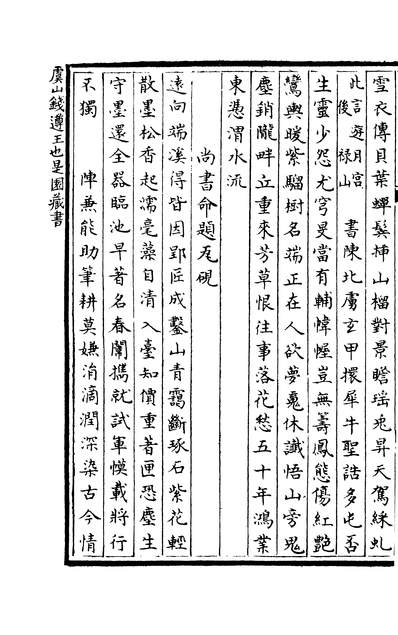 雪衣傳貝葉蟬鬢揷山榴對景瞻瑶兎昇天駕綵虬
此言遊月宫
後禄山
書陳北虜玄甲擐犀牛聖誥多屯否
生靈少怨尤穹旻當有輔幃幄豈無籌鳳態傷紅艶
鸞輿暖紫騮樹名端正在人欲夢䰟休讖悟山旁鬼
塵銷隴畔丘重來芳草恨往事落花愁五十年鴻業
東憑渭水流
尚書命題瓦硯
遠向端溪得皆因郢匠成鑿山青靄斷琢石紫花輕
散墨松香起濡毫藻自清入臺知價重著匣恐塵生
守墨還全器臨池早著名春闈攜就試軍幙載將行
不獨 陣兼能助筆耕莫嫌涓滴潤深染古今情
虞山錢遵王也是園藏書